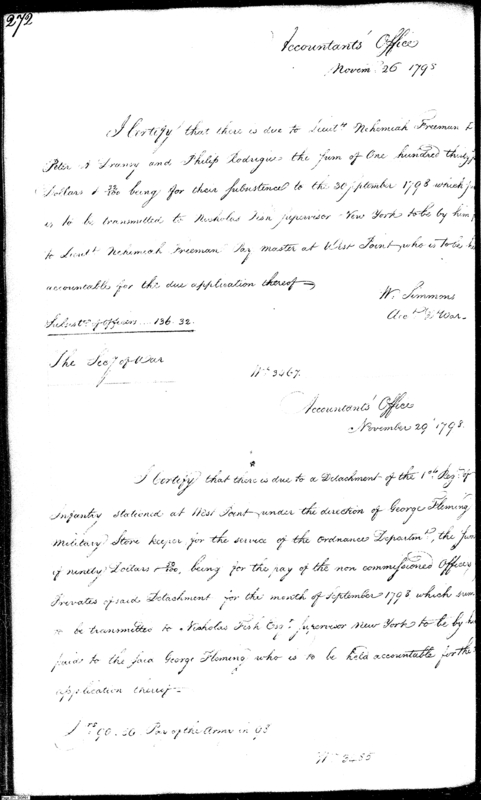 272
Accountants' Office
Novem. 26 1798
I Certify that there is due to Lieut. Nehemiah Freeman
Peter A Dransy and Philip Rodrigue the sum of One hundred thirty
Dollars & 32/100 being for their subsistence to the 30 September 1798 which
is to be transmitted to Nicholas Fish Supervisor New York to be by him
to Lieut. Nehemiah Freeman Pay master at West Point who is to be
accountable for the due application thereof
W. Simmons
Acct. War
Subsist. of Officers .... 136.32.
The Secy. of War
Accountants' Office
November 29 1798.
I Certify that there is due to a Detachment of the 1st. Regt. of
Infantry stationed at West Point under the direction of George Fleming
Military Store keeper for the service of the Ordnance Departmt., the sum
of ninety Dollars being for the pay of the non commissioned Officers
Privates of said Detachment for the month of September 1798 which sum
to be transmitted to Nicholas Fish Esqr. Supervisor New York to be by him
paid to the said George Fleming who is to be held accountable for the
application thereof
Drs 90.36 Pay of the Army in 98